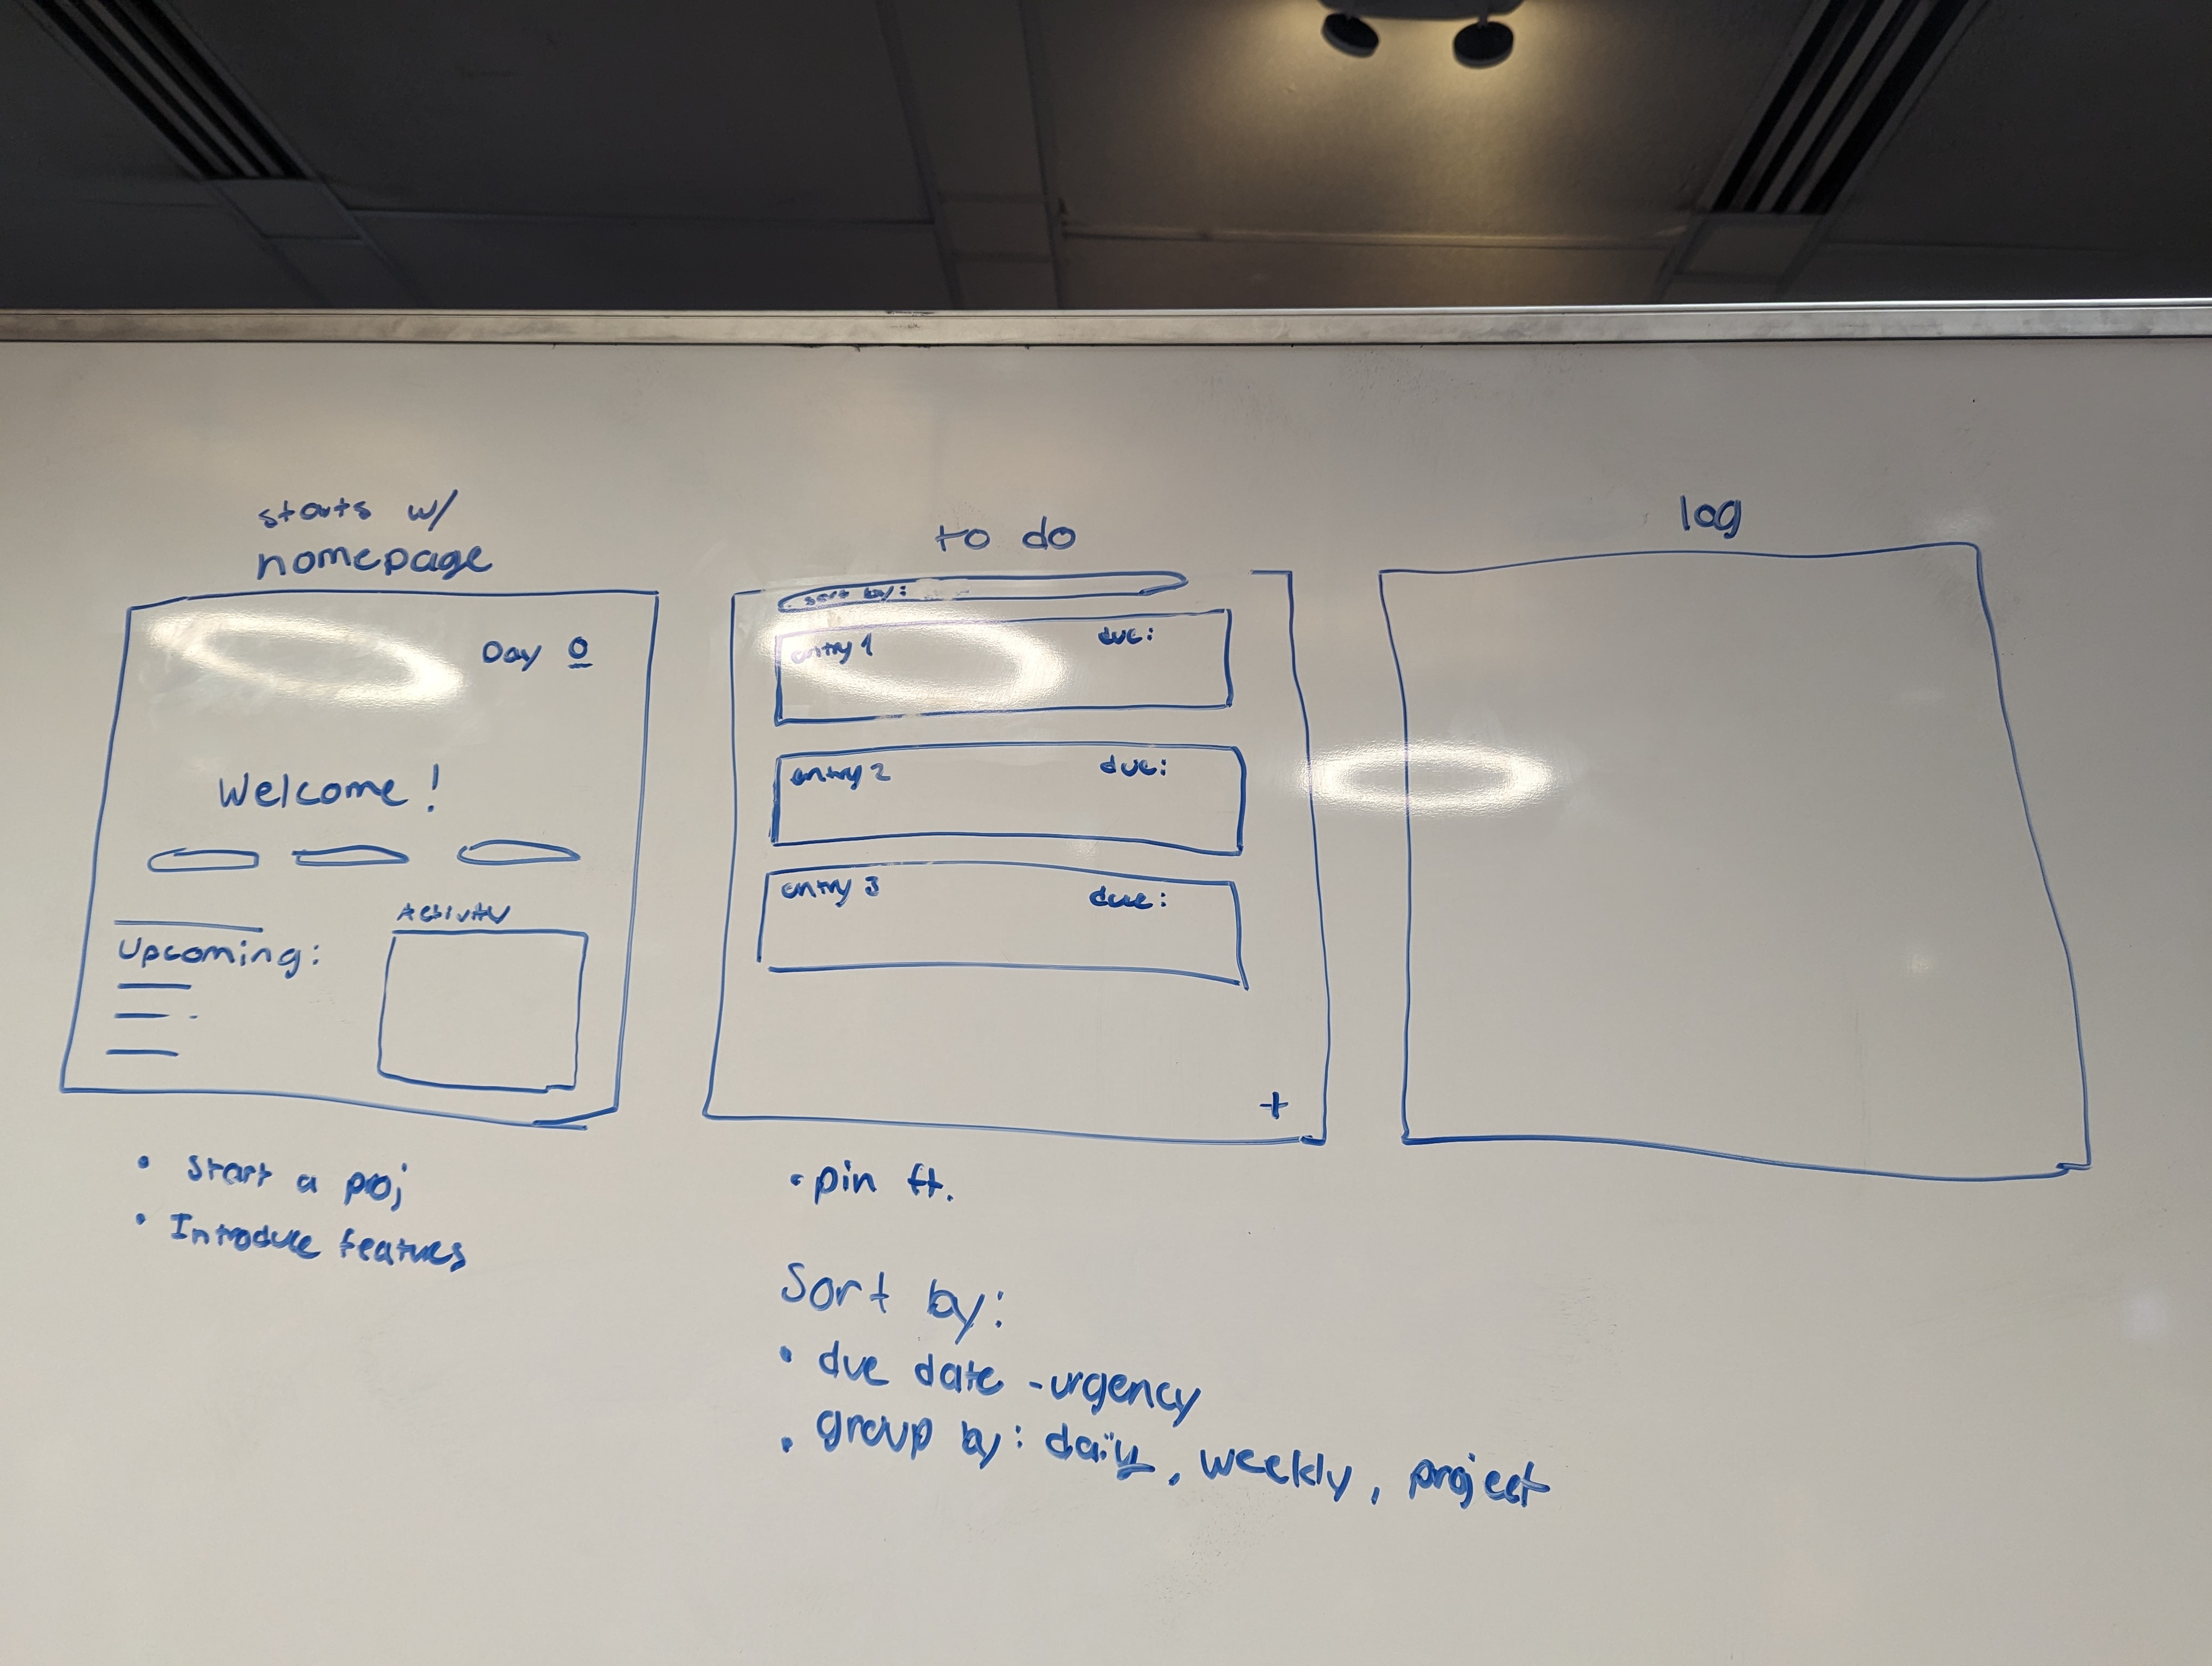 starts w/
homepage
Day 0
Welcome!
Activity
Upcoming:
• Start a proj
• Introduce features
to do
sort by:
entry 1 due:
entry 2 due:
entry 3 due:
+
• pin ft.
Sort by:
• due date - urgency
• group by: daily, weekly, project
log